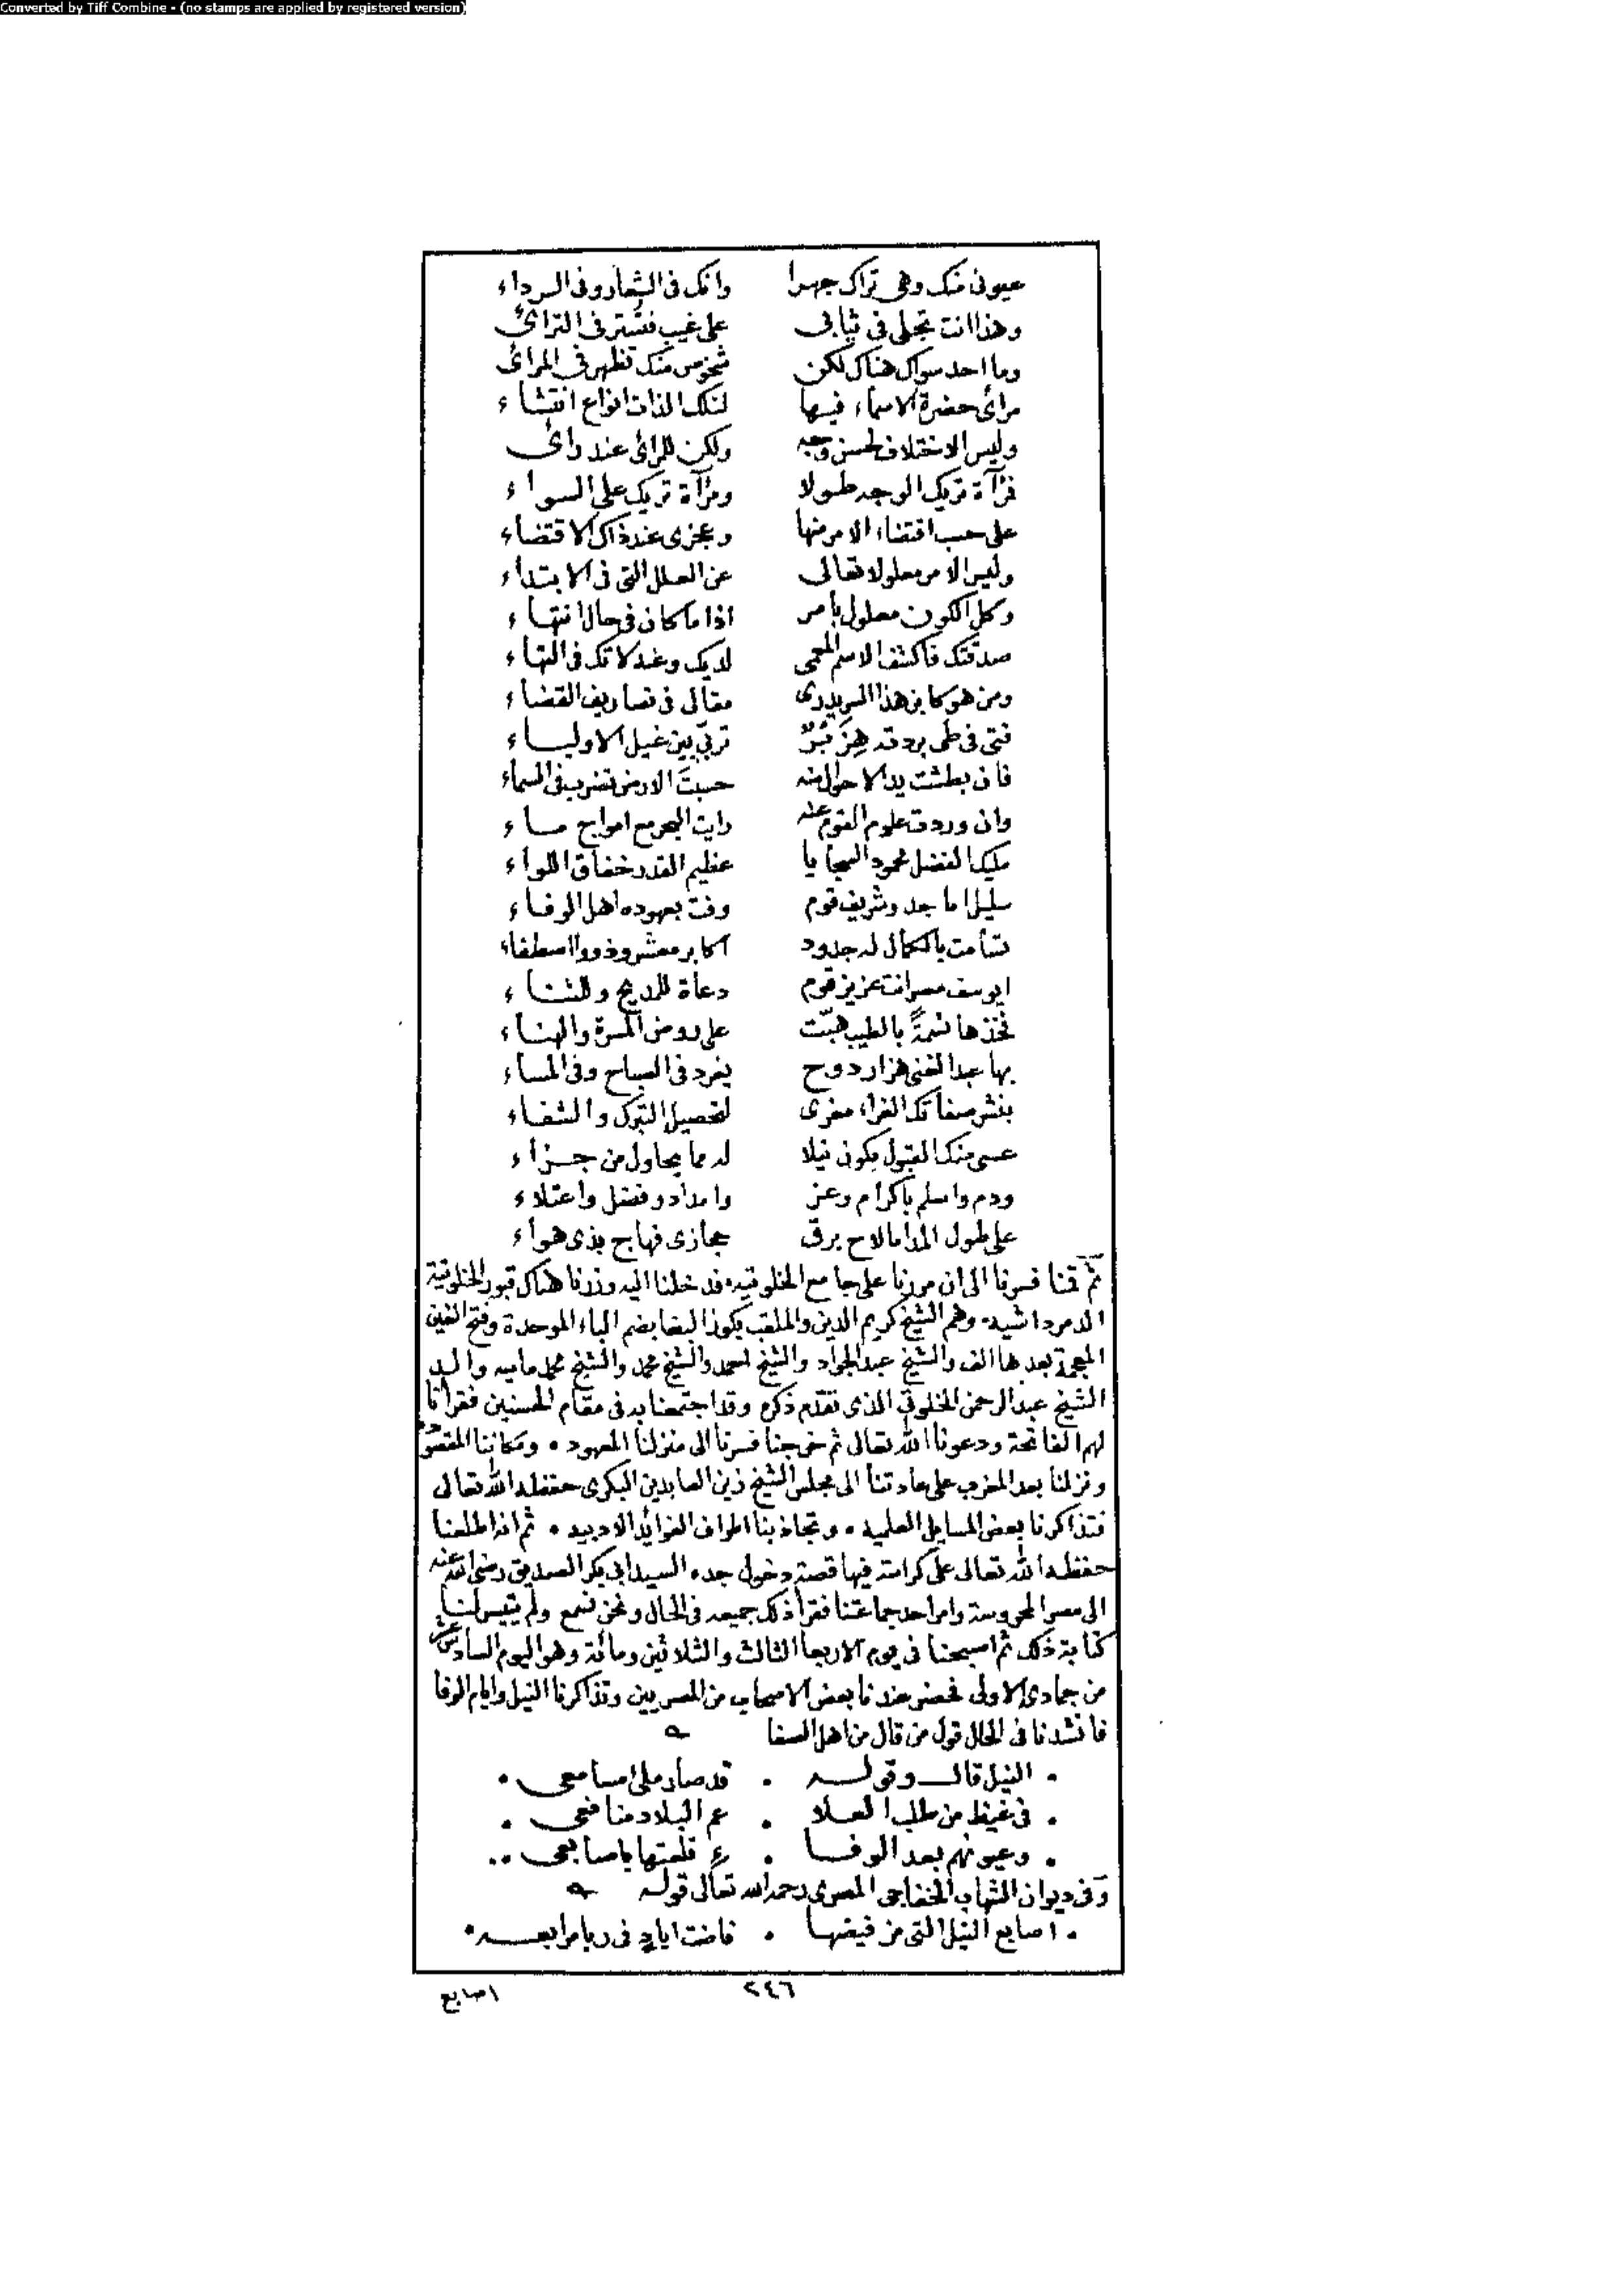 Converted by Tiff Combine - (no stamps are applied by registered version)
عيونى منك وهى تراك جهرا وانك فى الشعار وفى الرداء
وهذا انت تجلى فى ثيابى على غيب فتستر فى الترائى
وما احد سواك هناك لكن شخوص منك تظهر فى المرائى
مرائى حضرة الاسماء فيها لتلك الذات انواع انتشاء
وليس الاختلاف لحسن وجه ولكن للمرائى عند رائى
فمرآة تريك الوجه طولا ومرآة تريك على السواء
على حسب اقتضاء الامر منها وعجزى عند ذاك الاقتضاء
وليس الامر معلولا تعالى عن العلل التى فى الابتداء
وكل الكون معلول بامر اذا ما كان فى حال انتهاء
صدقتك فاكشف الاسم المعمى لديك وعند لا تك فى التهاء
ومن هو كابن هذا السر يدرى مقالى فى تصاريف القضاء
فتى فى طى بردته هزبر تربى بين غيل الاولياء
فان بطشت يد الاحوال منه حسبت الارض تضرب فى السماء
وان وردت علوم القوم عنه رايت البحر مع امواج ماء
مليك الفضل محمود السجايا عظيم القدر خفاق اللواء
سليل اماجد وشريف قوم وفت بعهوده اهل الوفاء
تسامت بالكمال له جدود اكابر معشر وذووا اصطفاء
ايوسف مصر انت عزيز قوم دعاة للمديح وللثناء
فخذها نسمة بالطيب هبت على روض المسرة والهناء
بها عبد الغنى هزار دوح يغرد فى الصباح وفى المساء
بنشر صفاتك الغراء مغرى لتحصيل التبرك والشفاء
عسى منك القبول يكون نيلا له مما يحاول من جزاء
ودم واسلم باكرام وعز وامداد وفضل واعتلاء
على طول المدا ما لاح برق حجازى فهاج بذى هواء
ثم قمنا فسرنا الى ان مررنا على جامع الخلوتيه فدخلنا اليه وزرنا هناك قبور الخلوتية
الدمرداشيه وهم الشيخ كريم الدين والملقب بكوز البغا بضم الباء الموحدة وفتح الغين
المعجمة بعدها الف والشيخ عبد الجواد والشيخ احمد والشيخ محمد والشيخ محمد ماميه والد
الشيخ عبد الرحمن الخلوتى الذى تقدم ذكره وقد اجتمعنا به فى مقام الحسنين فقرأنا
لهم الفاتحة ودعونا الله تعالى ثم خرجنا فسرنا الى منزلنا المعهود ٠ ومكاننا المقصود
ونزلنا بعد المغرب على عادتنا الى مجلس الشيخ زين العابدين البكرى حفظه الله تعالى
فتذاكرنا بعض المسايل العلميه ٠ وتجاذبنا اطراف الفوائد الادبيه ٠ ثم انه اطلعنا
حفظه الله تعالى على كراسة فيها قصة دخول جده السيد ابى بكر الصديق رضى الله عنه
الى مصر المحروسة وامر احد جماعتنا فقرأ ذلك جميعه فى الحال ونحن نسمع ولم يتيسر لنا
كتابة ذلك ثم اصبحنا فى يوم الاربعا الثالث والثلاثين ومائة وهو اليوم السادس عشر
من جمادى الاولى فحضر عندنا بعض الاصحاب من المصريين وتذاكرنا النيل وايام الوفا
فانشدنا فى الحال قول من قال من اهل الصفا
٠ النيل قال وقوله ٠ قد صار ملئ مسامعى ٠
٠ فى غيظ من طلب العلا ٠ عم البلاد منافعى ٠
٠ وعيونهم بعد الوفا ٠ قلعتها باصابعى ٠٠
وفى ديوان الشهاب الخفاجى المصرى رحمه الله تعالى قوله
٠ اصابع النيل التى من فيضها ٠ فاضت اياد فى ربا مرابعه ٠
٢٤٦
اصابع